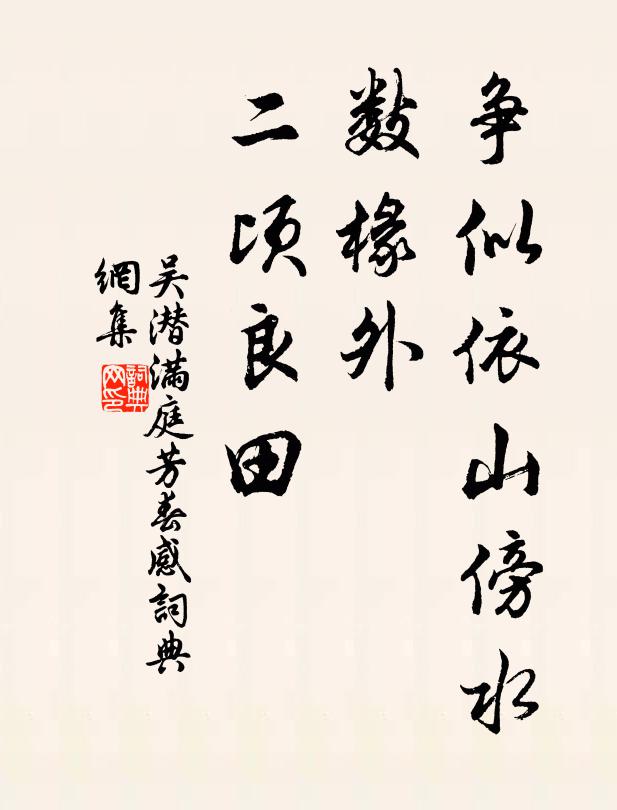 争似依山傍水
数椽外
二顷良田
吴潜满庭芳春感词典
網集
詞典
网印